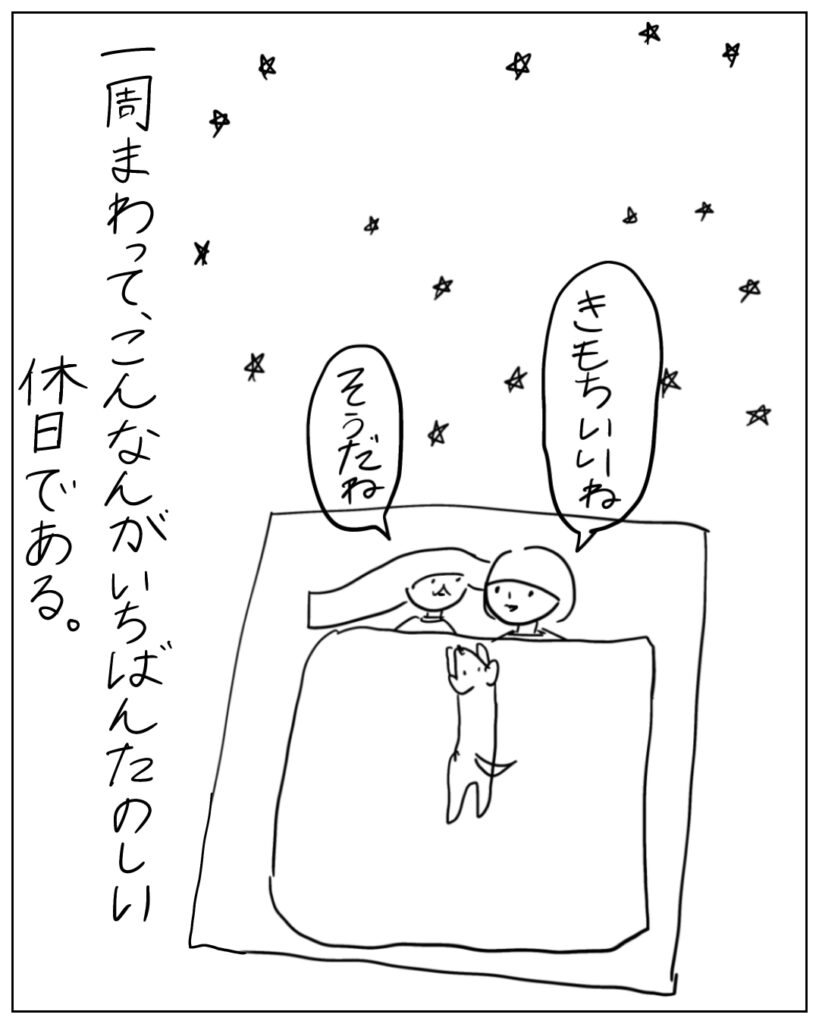 きもちいいね
そうだね
一周まわって、こんなんがいちばんたのしい
休日である。